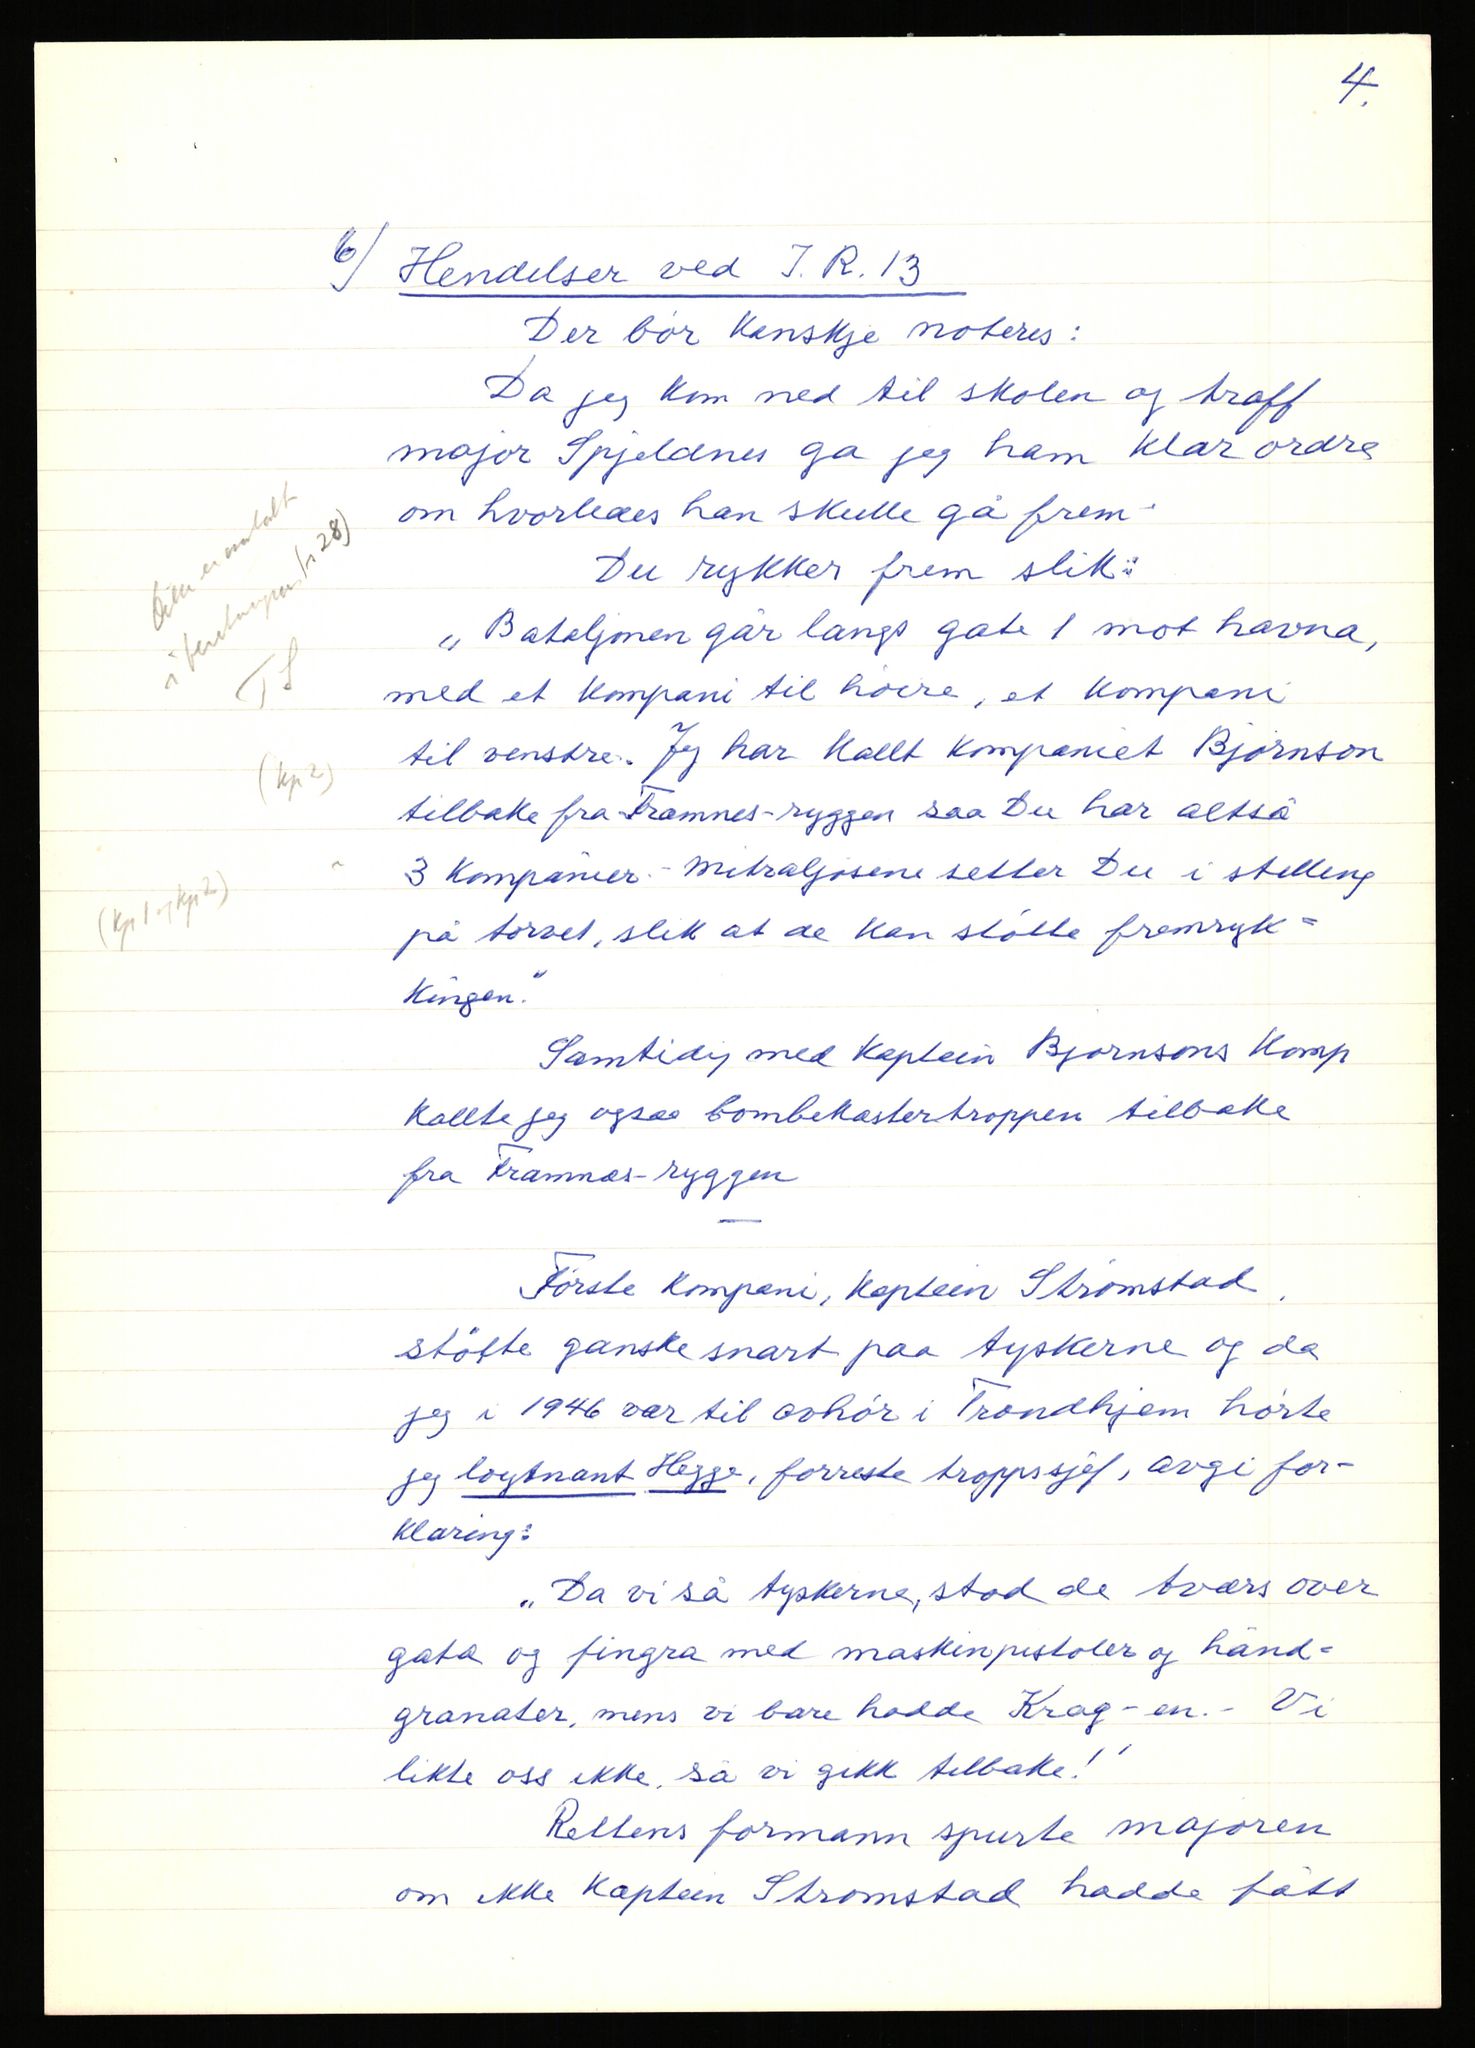 4.
6/ Hendelser ved I.R. 13
Der bör kanskje noteres:
Da jeg kom ned til skolen og traff
major Spjeldnes ga jeg ham klar ordre
om hvorledes han skulle gå frem -
Du rykker frem slik:
„Bataljonen går langs gate 1 mot havna,
med et kompani til höire, et kompani
til venstre. Jeg har kallt kompaniet Bjørnson
(kp 2)
tilbake fra Framnes-ryggen saa Du har altså
3 kompanier. - Mitraljösene setter Du i stilling
(kp 1 og kp 2)
på torvet, slik at de kan stötte fremryk=
kingen."
Samtidig med kaptein Bjørnsons komp
kallte jeg ogsaa bombekastertroppen tilbake
fra Framnæs-ryggen
—
Förste kompani, kaptein Strömstad,
stötte ganske snart paa tyskerne og da
jeg i 1946 var til avhör i Trondhjem hörte
jeg löytnant Hegge, forreste troppssjef, avgi for-
klaring:
„Da vi så tyskerne, stod de tvers over
gata og fingra med maskinpistoler og hånd=
granater, mens vi bare hadde Krag-en. - Vi
likte oss ikke, så vi gikk tilbake!"
Rettens formann spurte majoren
om ikke kaptein Strömstad hadde fått
Dette er omtalt
i beretningen (s 28)
TS